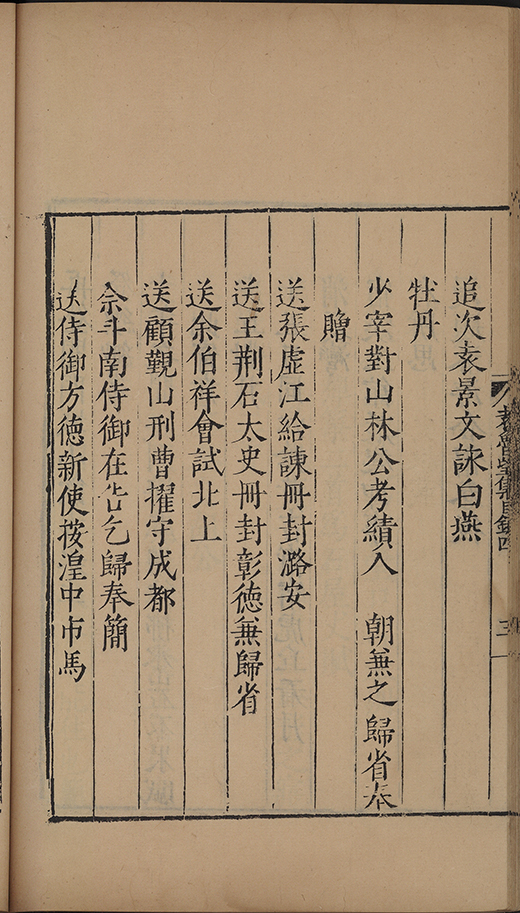 追次袁景文詠白燕
牡丹
少宰對山林公考績入　朝兼之歸省奉
贈
送張虛江給諫冊封潞安
送王荆石太史冊封彰德兼歸省
送余伯祥會試北上
送顧觀山刑曹擢守成都
余斗南侍御在告乞歸奉簡
送侍御方德新使按湟中市馬